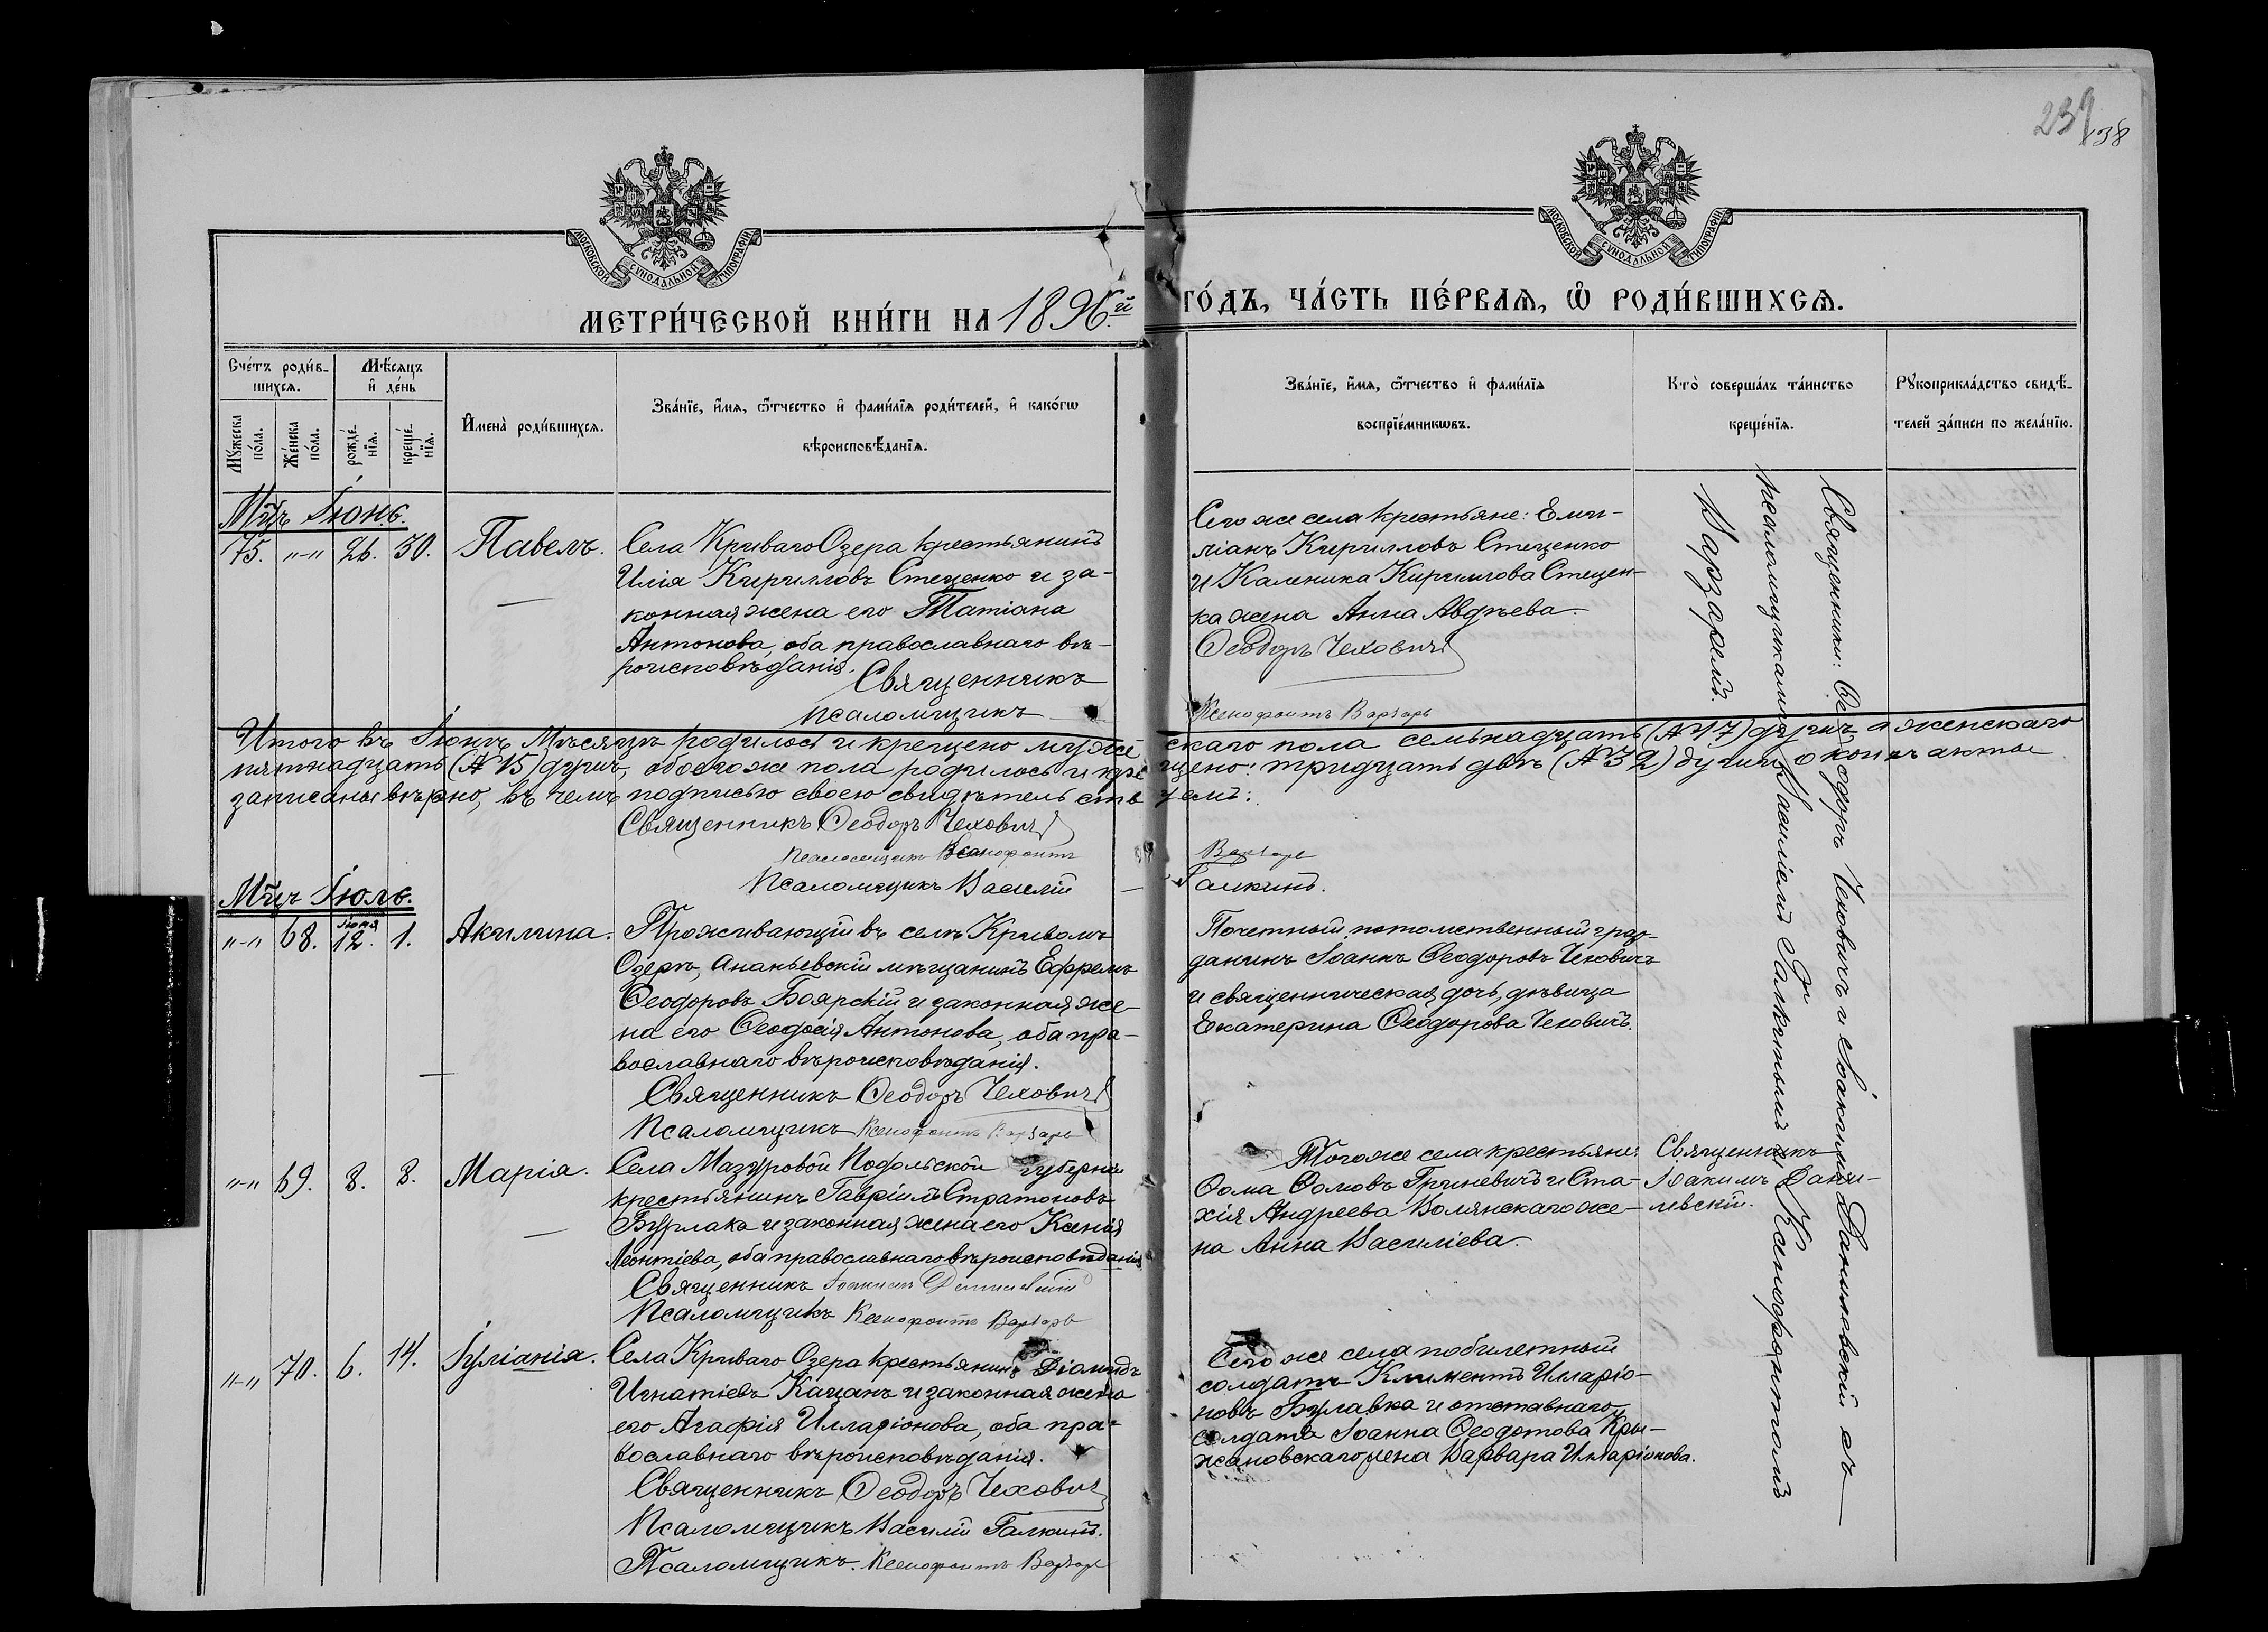 239
138
МОСКОВСКОЙ СѴНОДАЛЬНОЙ ТИПОГРАФІИ
МОСКОВСКОЙ СѴНОДАЛЬНОЙ ТИПОГРАФІИ
МЕТРИ́ЧЕСКОЙ КНИ́ГИ НА 1896й ГО́ДЪ, ЧА́СТЬ ПЕ́РВАѦ, Ѡ РОДИ́ВШИХСѦ.
Сче́тъ роди́в-
шихсѧ.
Мѣ́сѧцъ
и҆ де́нь
Мꙋ́жеска по́ла.
Же́нска по́ла.
рожде́-
нїѧ.
креще́-
нїѧ.
И҆мена̀ роди́вшихсѧ.
Зва́нїе, и҆́мѧ, ѻ҆́тчество и҆ фами́лїѧ роди́телей, и҆ како́гѡ
вѣроисповѣ́данїѧ.
Зва́нїе, и҆́мѧ, ѻ҆́тчество и҆ фами́лїѧ
воспрїе́мникѡвъ.
Кто̀ соверша́лъ та́инство
креще́нїѧ.
Рꙋкоприкла́дство свидѣ́-
телей за́писи по жела́нїю.
Мцъ Іюнь.
75. "-" 26. 30. Павелъ.
Села Криваго Озера крестьянинъ
Илія Кирилловъ Стеценко и за-
конная жена его Татіана
Антонова, оба православнаго вѣ-
роисповѣданія.
Священникъ
Псаломщикъ
Сего же села крестьяне: Еми-
ліанъ Кирилловъ Стеценко
и Каленика Кириллова Стецен-
ка жена Анна Авдѣева.
Ѳеодоръ Чеховичъ
Ксенофонтъ Варзарь
Священники: Ѳеодоръ Чеховичъ и Іоакимъ Данилевскій съ
псаломщиками Василіемъ Галкинымъ и Ксенофонтомъ
Варзаремъ.
Итого въ Іюнѣ Мѣсяцѣ родилось и крещено мужескаго пола семьнадцать (№ 17) душъ, а женскаго
пятнадцать (№ 15) душъ, обоего же пола родилось и крещено: тридцать двѣ (№ 32) души, о коихъ акты
записаны вѣрно, въ чемъ подписью своею свидѣтельствуемъ:
Священникъ Ѳеодоръ Чеховичъ
Псаломщикъ Ксенофонтъ Варзарь
Псаломщикъ Василій Галкинъ.
Мцъ Іюль.
"-" 68. іюня 12. 1. Акилина.
Проживающій въ селѣ Кривомъ
Озерѣ, Ананьевскій мѣщанинъ Ефремъ
Ѳеодоровъ Боярскій и законная же-
на его Ѳеодосія Антонова, оба пра-
вославнаго вѣроисповѣданія.
Священникъ Ѳеодоръ Чеховичъ
Псаломщикъ Ксенофонтъ Варзарь
Почетный потомственный граж-
данинъ Іоаннъ Ѳеодоровъ Чеховичъ
и священническая дочь, дѣвица
Екатерина Ѳеодорова Чеховичъ.
"-" 69. 8. 8. Марія.
Села Мазуровой Подольской губерніи
крестьянинъ Гавріилъ Стратоновъ
Бурлака и законная жена его Ксенія
Леонтіева, оба православнаго вѣроисповѣданія
Священникъ Іоакимъ Данилевскій
Псаломщикъ Ксенофонтъ Варзарь
Того же села крестьяне:
Ѳома Ѳомовъ Гриневичъ и Ста-
хія Андреева Волянскаго же-
на Анна Василіева.
Священникъ
Іоакимъ Дани-
левскій.
"-" 70. 6. 14. Іуліанія.
Села Криваго Озера крестьянинъ Діомидъ
Игнатіевъ Кацанъ и законная жена
его Агафія Илларіонова, оба пра-
вославнаго вѣроисповѣданія.
Священникъ Ѳеодоръ Чеховичъ
Псаломщикъ Василій Галкинъ.
Псаломщикъ. Ксенофонтъ Варзарь
Сего же села побилетный
солдатъ Климентъ Илларіо-
новъ Булавка и отставнаго
солдата Іоанна Ѳеодотова Кры-
жановскаго жена Варвара Илларіонова.